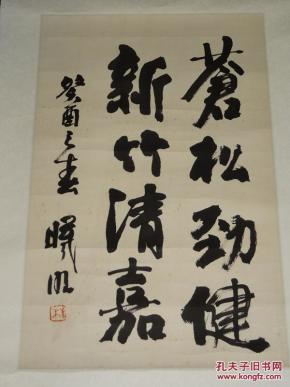 蒼松勁健
新竹清嘉
癸酉之春 曦明
孔夫子旧书网
kongfz.com